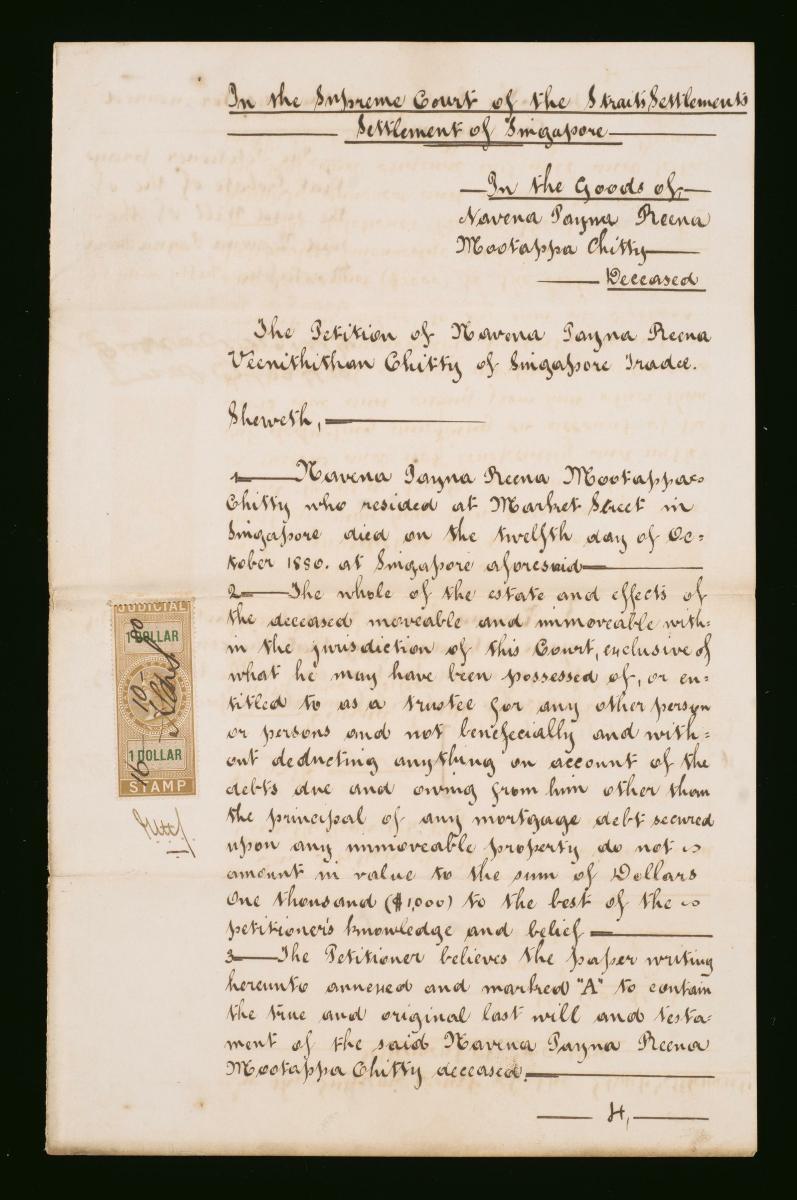 In the Supreme Court of the Straits Settlements
Settlement of Singapore
In the Goods of
Navena Payna Reena
Mootappa Chitty
Deceased
The Petition of Navena Payna Reena
Veenithithan Chitty of Singapore Trader.
Sheweth,
1 Navena Payna Reena Mootappa
Chitty who resided at Market Street in
Singapore died on the twelfth day of Oc=
tober 1880. at Singapore aforesaid
2 The whole of the estate and effects of
the deceased moveable and immoveable with=
in the jurisdiction of this Court, exclusive of
what he may have been possessed of, or en=
titled to as a trustee for any other person
or persons and not beneficially and with=
out deducting anything on account of the
debts due and owing from him other than
the principal of any mortgage debt secured
upon any immoveable property do not
amount in value to the sum of Dollars
One thousand ($1,000) to the best of the
petitioner's knowledge and belief
3 The Petitioner believes the paper writing
hereunto annexed and marked "A" to contain
the true and original last will and testa-
ment of the said Navena Payna Reena
Mootappa Chitty deceased.
4,
JUDICIAL
1 DOLLAR
1 DOLLAR
STAMP